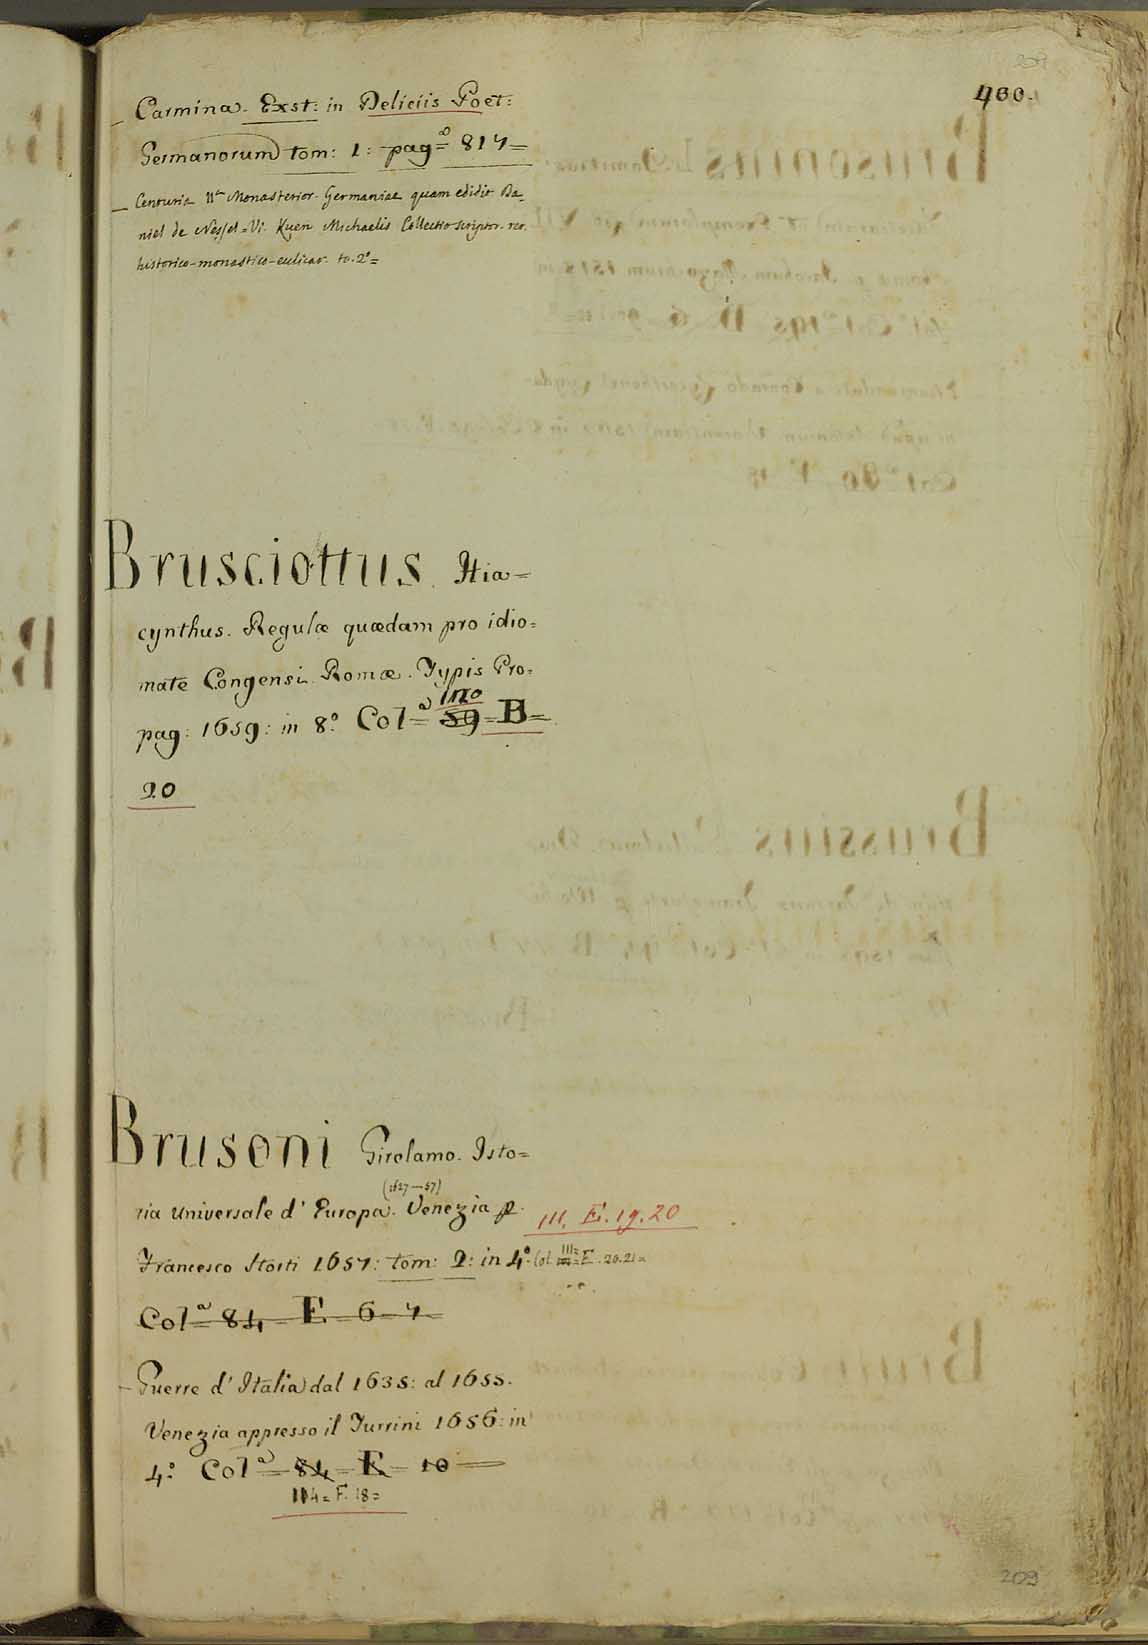 400.
Carmina. Exst: in Deliciis Poet:
Germanorum tom: 1: pag=ª 817=
Centuria IIª Monasterior. Germaniae quam edidit Da=
niel de Nessel = Vi. Kuen Michaelis Collectio scriptor. rer.
historico-monastico- to. 2º=
Brusciottus. Hia=
cynthus. Regulæ quædam pro idio=
mate Congensi. Romæ. Typis Pro=
110
pag: 1659: in 8º. Col=ª 59=B=
20
Brusoni Girolamo. Isto=
(1627-57)
ria universale d' Europa. Venezia p.
III. E. 19. 20
Francesco Storti 1657: tom: 2: in 4º. Col. III=E. 20.21=
Col=ª 84 E 6-7
- Guerre d' Italia dal 1635: al 1655.
Venezia appresso il Turrini 1656: in
4º. Col=ª 84=E=10
114=F.18=
209